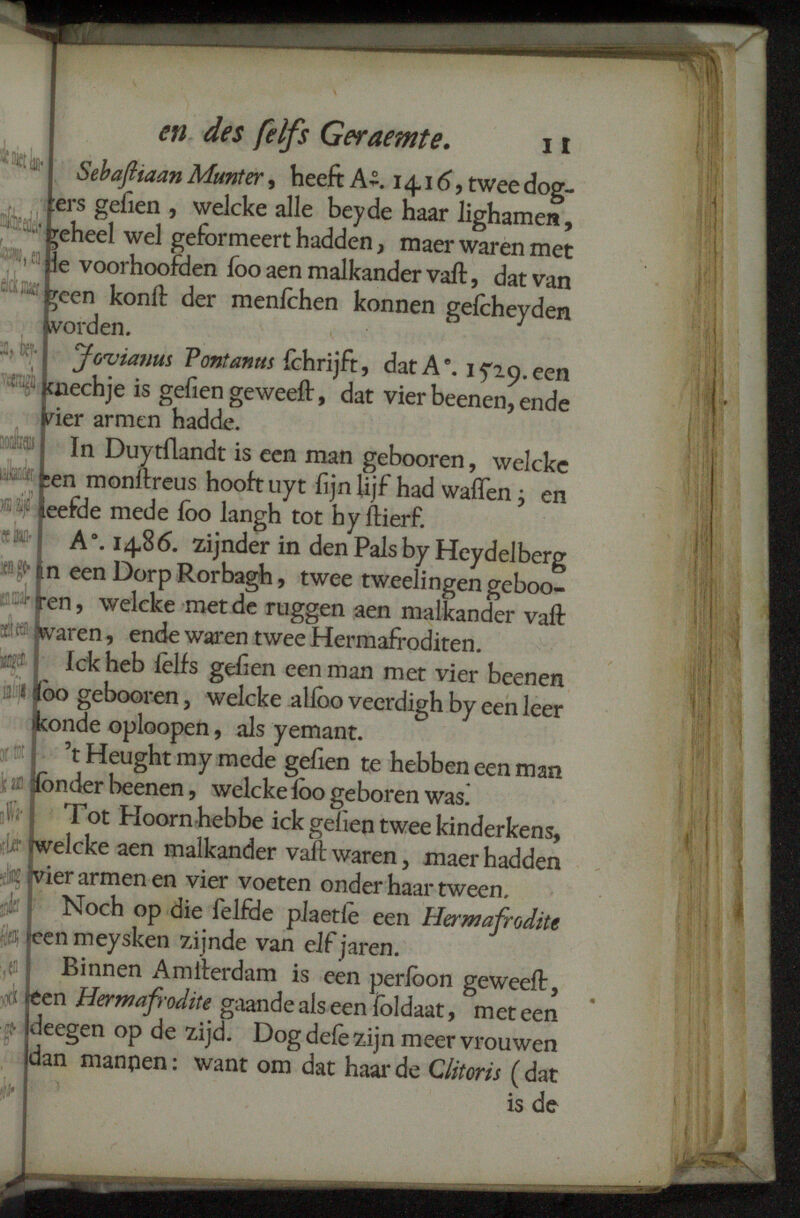 en des ſelfs Geraemte. 11
Sebaſtiaan Munter, heeft A°. 1416, twee dog-
ters geſien, welcke alle beyde haar lighamen,
geheel wel geformeert hadden, maer waren met
de voorhoofden ſoo aen malkander vaſt, dat van
geen konſt der menſchen konnen geſcheyden
worden.
Jovianus Pontanus ſchrijft, dat A°. 1529. een
knechje is geſien geweeſt, dat vier beenen, ende
vier armen hadde.
In Duytſlandt is een man gebooren, welcke
een monſtreus hooft uyt ſijn lijf had waſſen; en
leefde mede ſoo langh tot hy ſtierf.
A°. 1486. zijnder in den Pals by Heydelberg
in een Dorp Rorbagh, twee tweelingen geboo-
ren, welcke met de ruggen aen malkander vaſt
waren, ende waren twee Hermafroditen.
Ick heb ſelfs geſien een man met vier beenen
ſoo gebooren, welcke alſoo veerdigh by een leer
konde oploopen, als yemant.
't Heught my mede geſien te hebben een man
ſonder beenen, welcke ſoo geboren was.
Tot Hoorn hebbe ick geſien twee kinderkens,
welcke aen malkander vaſt waren, maer hadden
vier armen en vier voeten onder haar tween.
Noch op die ſelfde plaetſe een Hermafrodite
een meysken zijnde van elf jaren.
Binnen Amſterdam is een perſoon geweeſt,
een Hermafrodite gaande als een ſoldaat, met een
deegen op de zijd. Dog deſe zijn meer vrouwen
dan mannen: want om dat haar de Clitoris (dat
is de